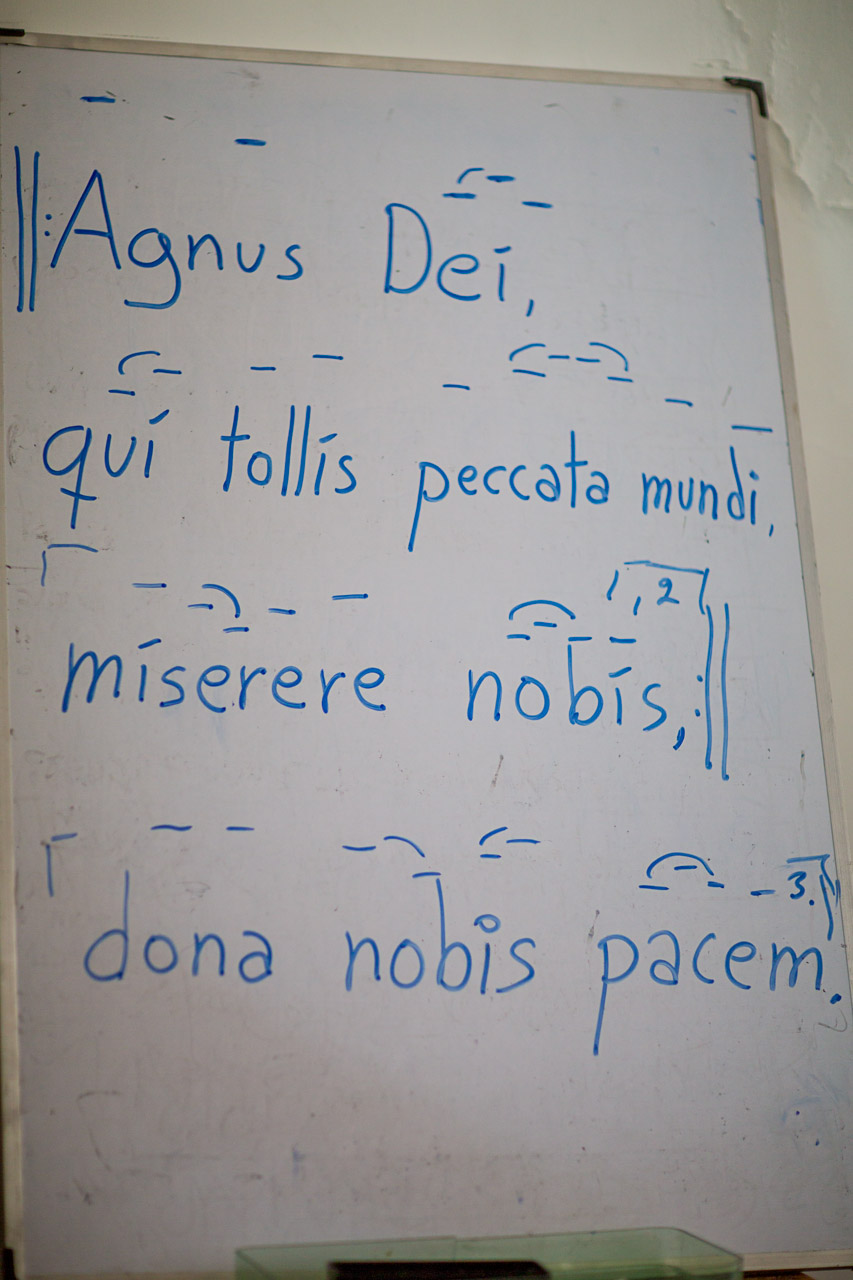 Agnus Dei,
qui tollis peccata mundi,
1, 2
miserere nobis,
3.
dona nobis pacem.